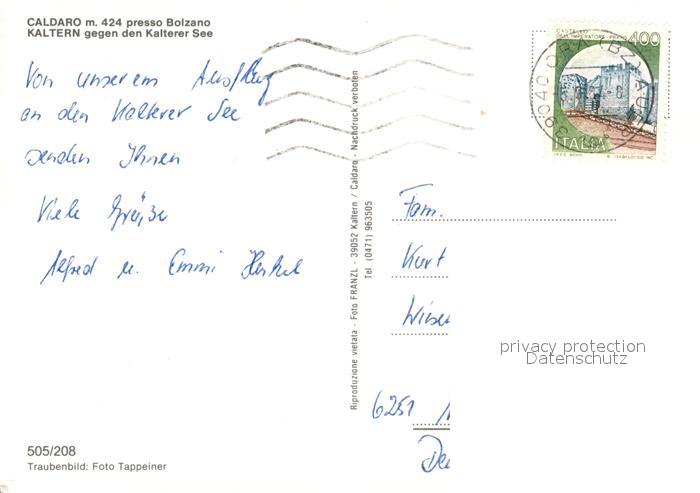 CALDARO m. 424 presso Bolzano
KALTERN gegen den Kalterer See
Von unserem Ausflug
an den Kalterer See
senden Ihnen
Viele Grüße
Alfred u. Emmi
505/208
Traubenbild: Foto Tappeiner
Riproduzione vietata - Foto FRANZL - 39052 Kaltern / Caldaro - Nachdruck verboten
Tel (0471) 963505
CASTELLO
DELL'IMPERATORE - PRATO 400
ITALIA
ORA (BZ) AUER
Fam.
Kurt
6251
privacy protection
Datenschutz